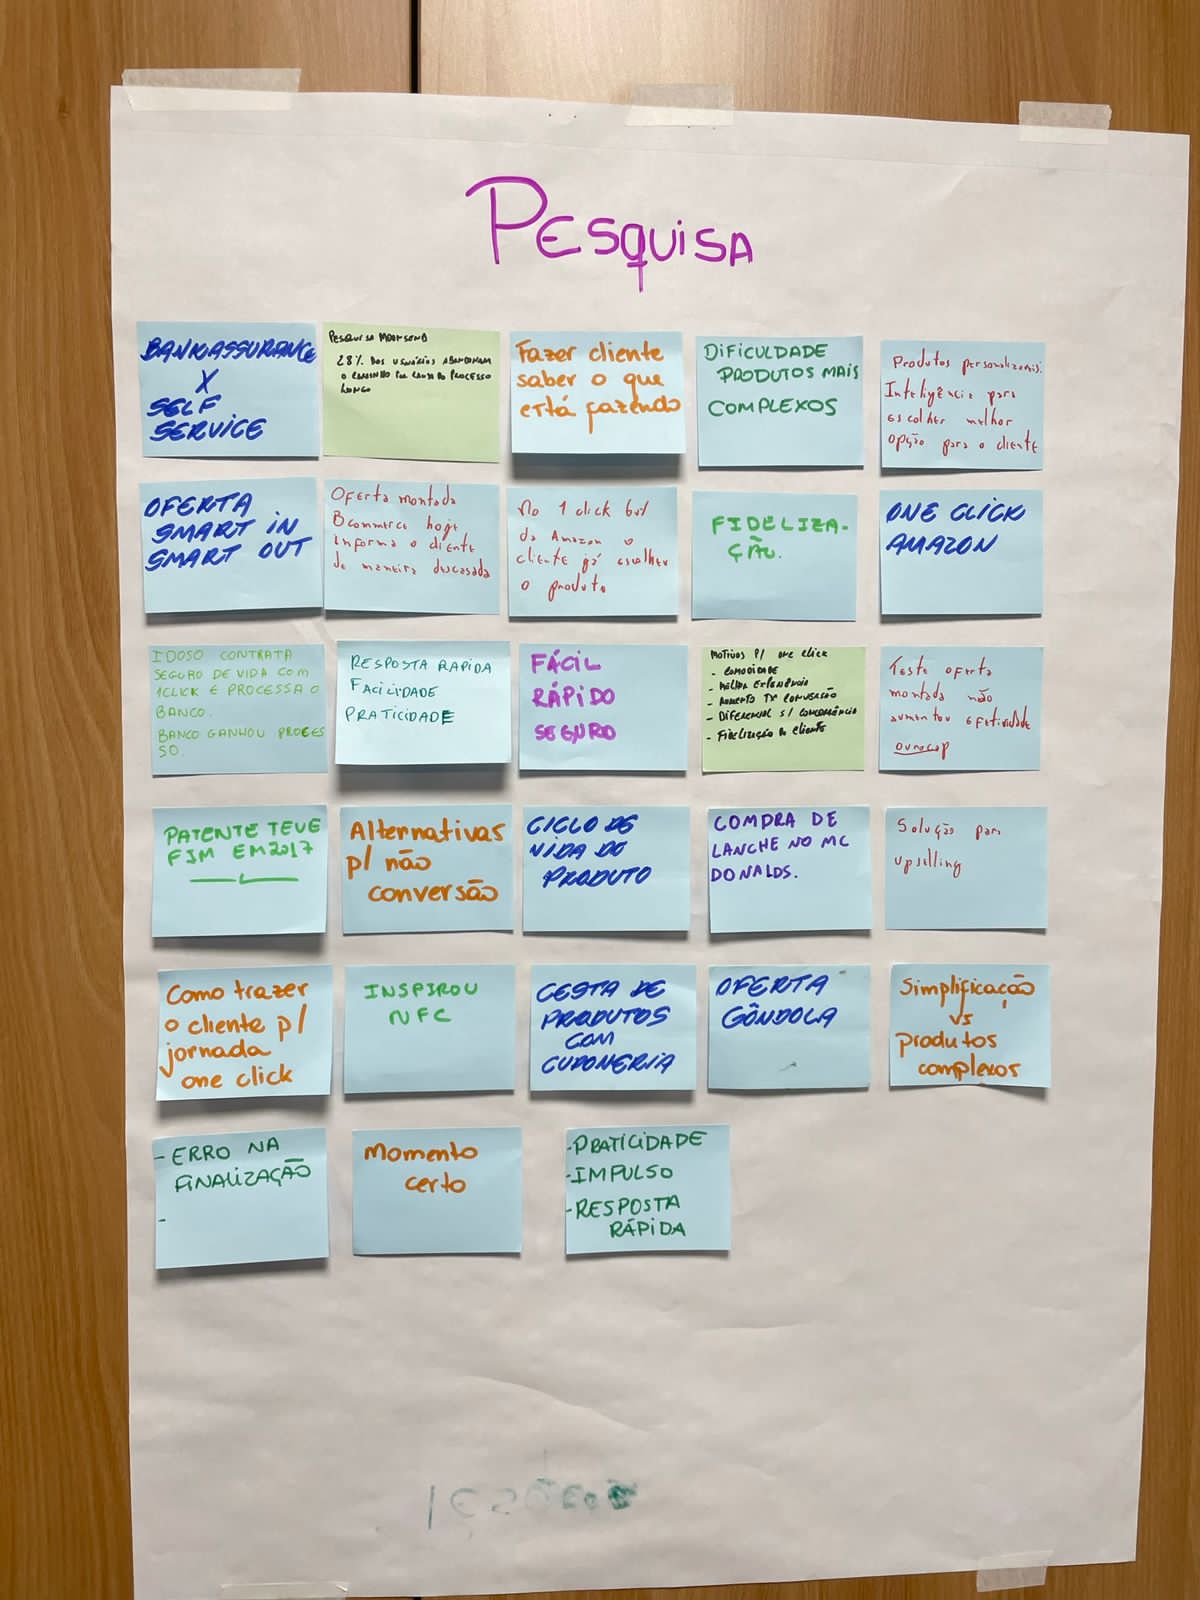 PESQUISA
BANKASSURANCE
X
SELF
SERVICE
PESQUISA MOOSEND
28% DOS USUÁRIOS ABANDONAM
O CARRINHO POR CAUSA DO PROCESSO
LONGO
Fazer cliente
saber o que
está fazendo
DIFICULDADE
PRODUTOS MAIS
COMPLEXOS
Produtos personalizados:
Inteligência para
escolher melhor
opção para o cliente
OFERTA
SMART IN
SMART OUT
Oferta montada
Bcommerce hoje
informa o cliente
de maneira descasada
No 1 click buy
da Amazon o
cliente já escolheu
o produto
FIDELIZA-
ÇÃO.
ONE CLICK
AMAZON
IDOSO CONTRATA
SEGURO DE VIDA COM
1CLICK E PROCESSA O
BANCO.
BANCO GANHOU PROCES
SO.
RESPOSTA RAPIDA
FACILIDADE
PRATICIDADE
FÁCIL
RÁPIDO
SEGURO
MOTIVOS P/ ONE CLICK
- COMODIDADE
- MELHOR EXPERIÊNCIA
- AUMENTO TX CONVERSÃO
- DIFERENCIAL S/ CONCORRÊNCIA
- FIDELIZAÇÃO DO CLIENTE
Teste oferta
montada não
aumentou efetividade
ourocap
PATENTE TEVE
FIM EM 2017
Alternativas
p/ não
conversão
CICLO DE
VIDA DO
PRODUTO
COMPRA DE
LANCHE NO MC
DONALDS.
Solução para
upselling
Como trazer
o cliente p/
jornada
one click
INSPIROU
NFC
CESTA DE
PRODUTOS
COM
CUPONERIA
OFERTA
GÔNDOLA
Simplificação
vs
produtos
complexos
- ERRO NA
FINALIZAÇÃO
-
Momento
certo
- PRATICIDADE
- IMPULSO
- RESPOSTA
RÁPIDA